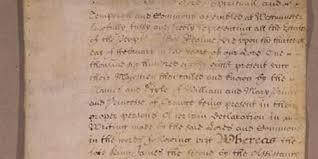 Lords Spirituall and
Temporall and Commons assembled at Westminster
lawfully fully and freely representing all the Estates
of the People of this Realme did upon the thirteenth
day of February in the yeare of our Lord One
thousand six hundred eighty eight present unto
their Majesties then called and known by the
Names and Stile of William and Mary Prince
and Princesse of Orange being present in their
proper persons A certain Declaration in
Writing made by the said Lords and Commons
in the words following viz Whereas the
late King James the second by the Assistance